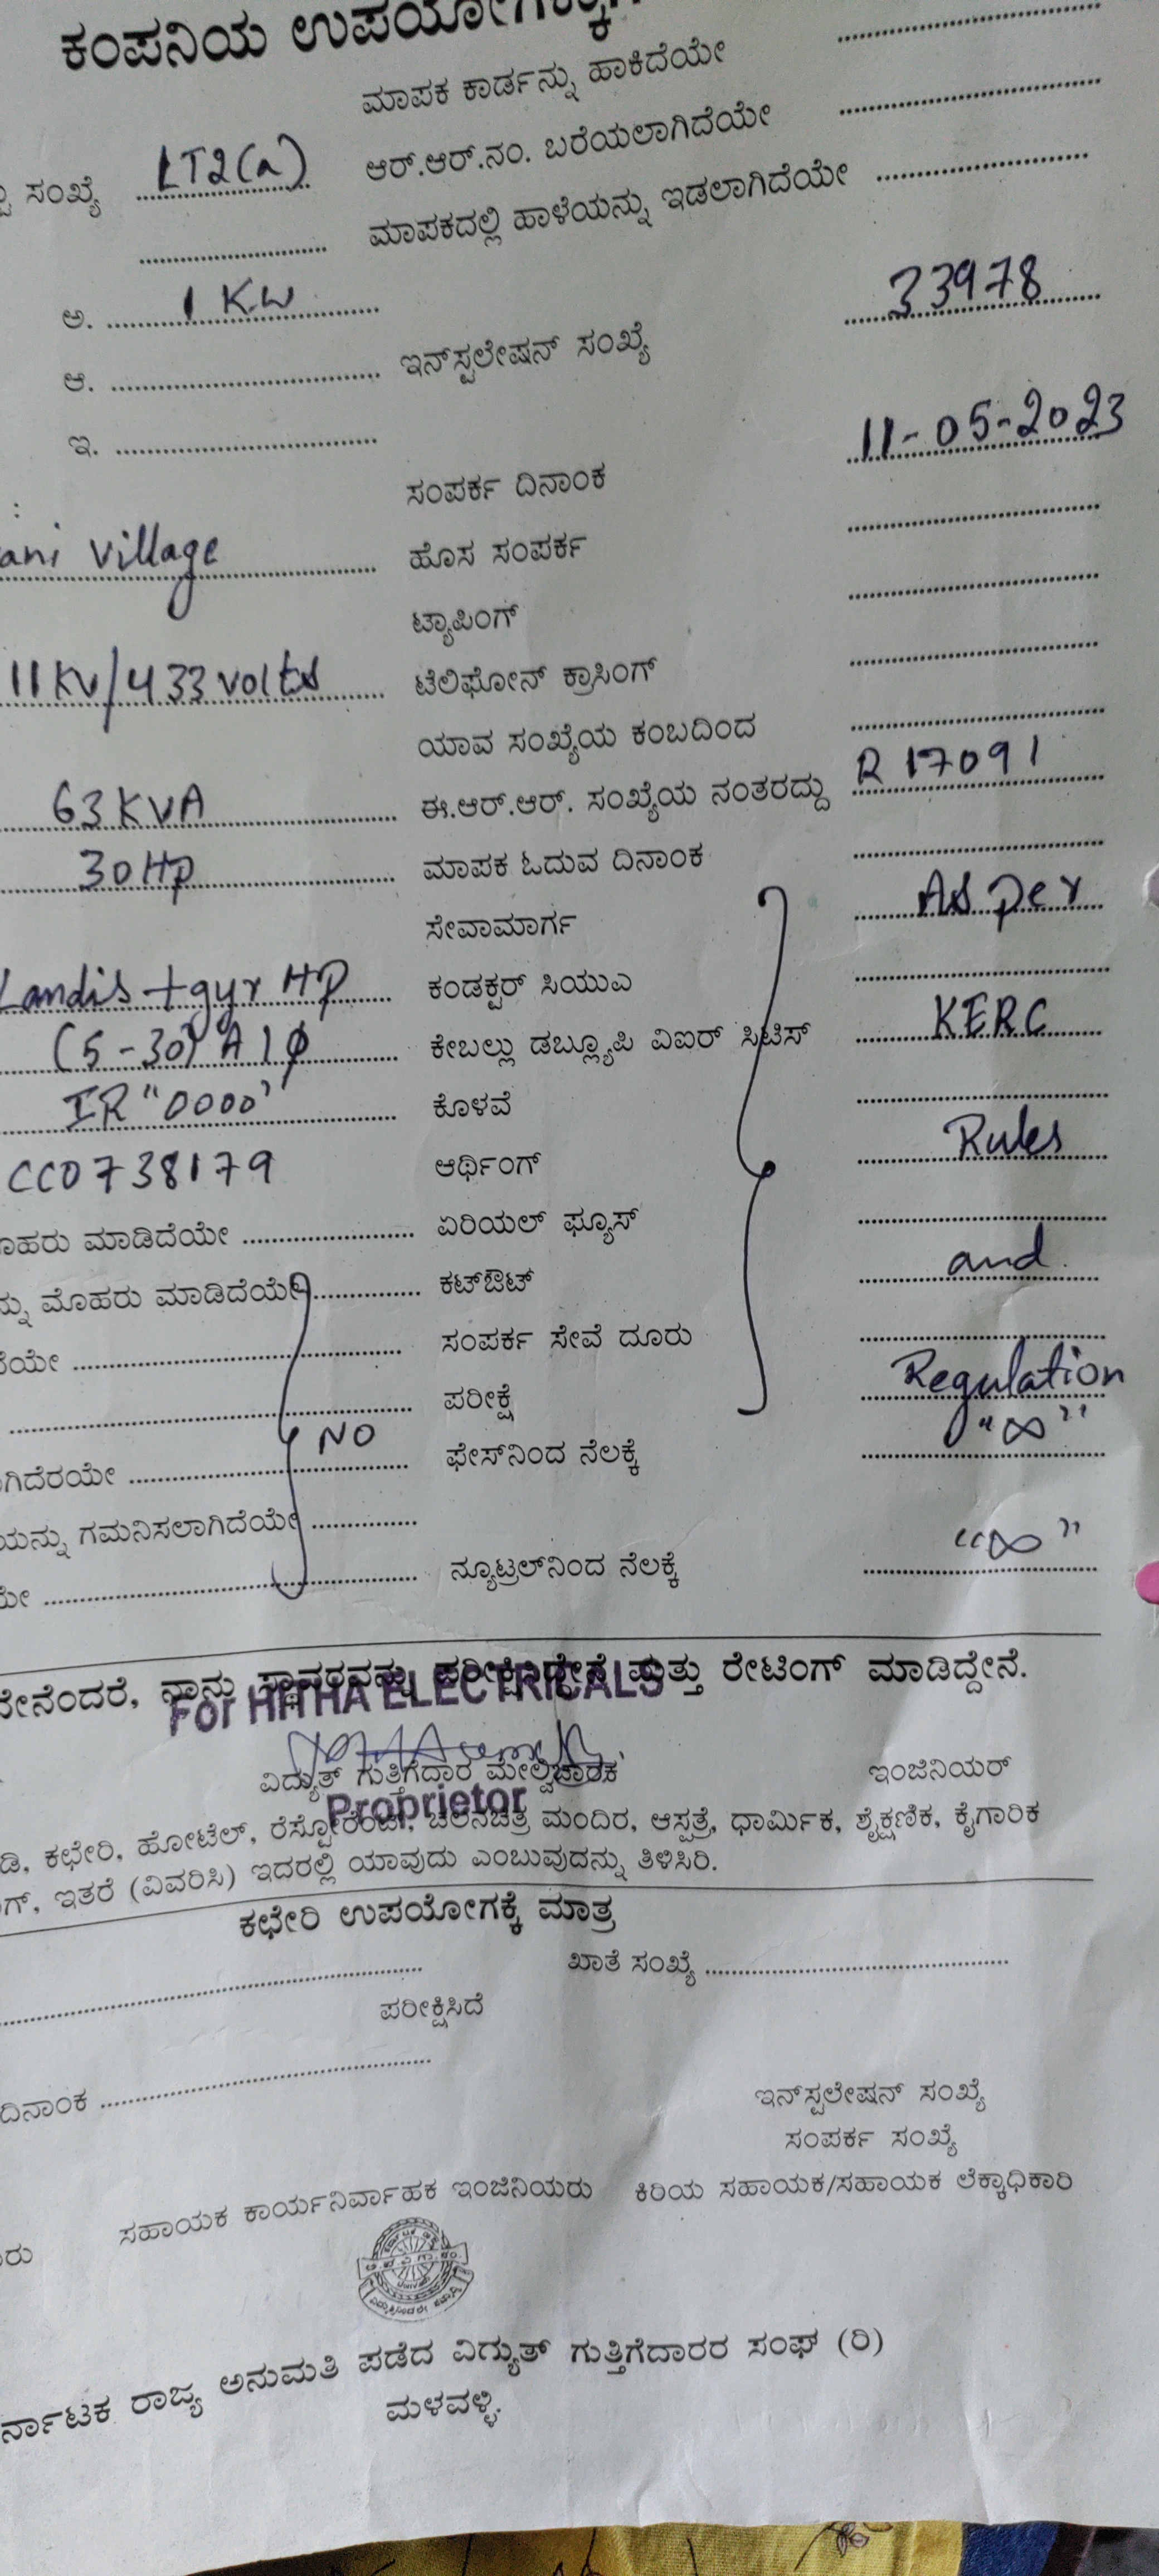 ಕಂಪನಿಯ
ಮಾಪಕ ಕಾರ್ಡನ್ನು ಹಾಕಿದೆಯೇ ....................
ಸಂಖ್ಯೆ LT2(a) ಆರ್.ಆರ್.ನಂ. ಬರೆಯಲಾಗಿದೆಯೇ ....................
.................... ಮಾಪಕದಲ್ಲಿ ಹಾಳೆಯನ್ನು ಇಡಲಾಗಿದೆಯೇ ....................
ಅ. 1 K.W
ಆ. .................... ಇನ್‌ಸ್ಟಲೇಷನ್ ಸಂಖ್ಯೆ 33978
ಇ. ....................
ಸಂಪರ್ಕ ದಿನಾಂಕ 11-05-2023
ani Village ಹೊಸ ಸಂಪರ್ಕ ....................
ಟ್ಯಾಪಿಂಗ್ ....................
11KV/433 volts ಟೆಲಿಫೋನ್ ಕ್ರಾಸಿಂಗ್ ....................
ಯಾವ ಸಂಖ್ಯೆಯ ಕಂಬದಿಂದ ....................
63 KVA ಈ.ಆರ್.ಆರ್. ಸಂಖ್ಯೆಯ ನಂತರದ್ದು R 17091
30 HP ಮಾಪಕ ಓದುವ ದಿನಾಂಕ ....................
ಸೇವಾಮಾರ್ಗ As per
Landis + gyr HP ಕಂಡಕ್ಟರ್ ಸಿಯುಎ ....................
(5-30) A 1φ ಕೇಬಲ್ಲು ಡಬ್ಲ್ಯೂಪಿ ವಿಐರ್ ಸಿಟಿಸ್ KERC
IR "0000" ಕೊಳವೆ ....................
CC0738179 ಆರ್ಥಿಂಗ್ Rules
ಮಾಡಿದೆಯೇ .................... ಏರಿಯಲ್ ಫ್ಯೂಸ್ ....................
ಮೊಹರು ಮಾಡಿದೆಯೇ .................... ಕಟ್‌ಔಟ್ and
.................... ಸಂಪರ್ಕ ಸೇವೆ ದೂರು ....................
.................... ಪರೀಕ್ಷೆ Regulation
NO ಫೇಸ್‌ನಿಂದ ನೆಲಕ್ಕೆ "∞"
ಗಮನಿಸಲಾಗಿದೆಯೇ ....................
.................... ನ್ಯೂಟ್ರಲ್‌ನಿಂದ ನೆಲಕ್ಕೆ "∞"
ನಾನು ಸ್ಥಾವರವನ್ನು ಪರೀಕ್ಷಿಸಿದ್ದೇನೆ ಮತ್ತು ರೇಟಿಂಗ್ ಮಾಡಿದ್ದೇನೆ.
For HITHA ELECTRICALS
ವಿದ್ಯುತ್ ಗುತ್ತಿಗೆದಾರ ಮೇಲ್ವಿಚಾರಕ ಇಂಜಿನಿಯರ್
Proprietor
ಕಛೇರಿ, ಹೋಟೆಲ್, ರೆಸ್ಟೋರೆಂಟ್, ಚಲನಚಿತ್ರ ಮಂದಿರ, ಆಸ್ಪತ್ರೆ, ಧಾರ್ಮಿಕ, ಶೈಕ್ಷಣಿಕ, ಕೈಗಾರಿಕ
ಇತರೆ (ವಿವರಿಸಿ) ಇದರಲ್ಲಿ ಯಾವುದು ಎಂಬುವುದನ್ನು ತಿಳಿಸಿರಿ.
ಕಛೇರಿ ಉಪಯೋಗಕ್ಕೆ ಮಾತ್ರ
.................... ಖಾತೆ ಸಂಖ್ಯೆ ....................
ಪರೀಕ್ಷಿಸಿದೆ
ದಿನಾಂಕ ....................
ಇನ್‌ಸ್ಟಲೇಷನ್ ಸಂಖ್ಯೆ
ಸಂಪರ್ಕ ಸಂಖ್ಯೆ
ಸಹಾಯಕ ಕಾರ್ಯನಿರ್ವಾಹಕ ಇಂಜಿನಿಯರು ಕಿರಿಯ ಸಹಾಯಕ/ಸಹಾಯಕ ಲೆಕ್ಕಾಧಿಕಾರಿ
ರ್ನಾಟಕ ರಾಜ್ಯ ಅನುಮತಿ ಪಡೆದ ವಿದ್ಯುತ್ ಗುತ್ತಿಗೆದಾರರ ಸಂಘ (ರಿ)
ಮಳವಳ್ಳಿ.